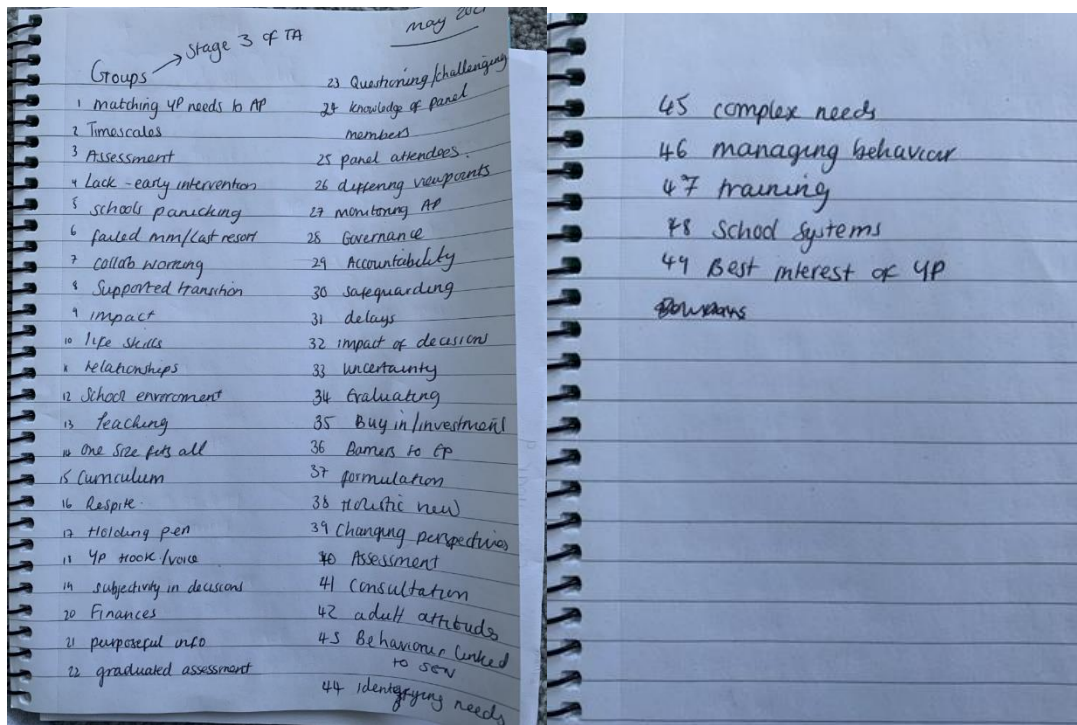 May
Stage 3 of TA
Groups
1 matching YP needs to AP
2 Timescales
3 Assessment
4 Lack - early intervention
5 schools panicking
6 failed mm/Last resort
7 collab working
8 Supported transition
9 impact
10 life skills
11 relationships
12 School enviroment
13 Teaching
14 one size fits all
15 Curriculum
16 Respite
17 Holding pen
18 YP Hook/voice
19 subjectivity in decisions
20 Finances
21 purposeful info
22 graduated assessment
23 Questioning/challenging
24 knowledge of panel
members
25 panel attendees.
26 differing viewpoints
27 monitoring AP
28 Governance
29 Accountability
30 safeguarding
31 delays
32 impact of decisions
33 uncertainty
34 Evaluating
35 Buy in/investment
36 Barriers to EP
37 formulation
38 Holistic view
39 Changing perspectives
40 Assessment
41 Consultation
42 adult attitudes
43 Behaviour linked
to SEN
44 Identifying needs
45 complex needs
46 managing behaviour
47 training
48 School systems
49 Best interest of YP